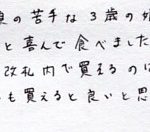 の苦手な3歳の
と喜んで食べました
改札内で買えるのは
も買えると良いと思